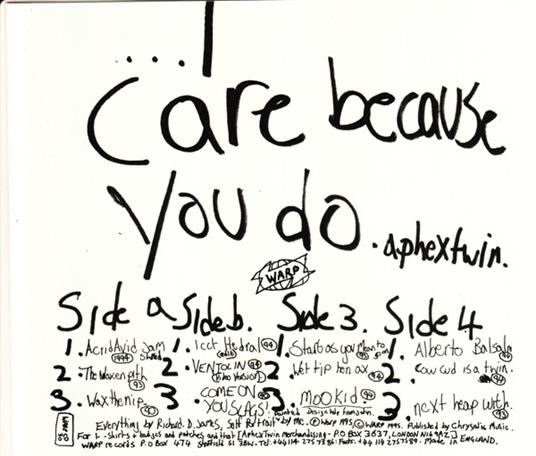 ...I
Care because
you do. aphextwin.
WARP
Side a Side b. Side 3. Side 4
1. Acrid Avid Jam Shred 1994
2. The Waxen pith 93
3. Wax the nip 90
1 Icct Hedral 94 (edit)
2. VENTOLIN 94 (Video Version)
3 COME ON YOU SLAGS!
1. Start as you mean to go on
2. Wet tip hen ax 94
3. Mookid 94
1. Alberto Balsalm 94
2. Cow cud is a twin. 94
3. next heap with. 93
Everything by Richard. D. James, Self Portrait by me. ℗ Warp 1995 © Warp 1995. Published by Chrysalis Music.
For t-shirts + badges and patches and that [AphexTwin Merchandising - P O BOX 3637, LONDON N14 9AZ]
WARP records P O BOX 474 Sheffield S1 MADE IN ENGLAND.